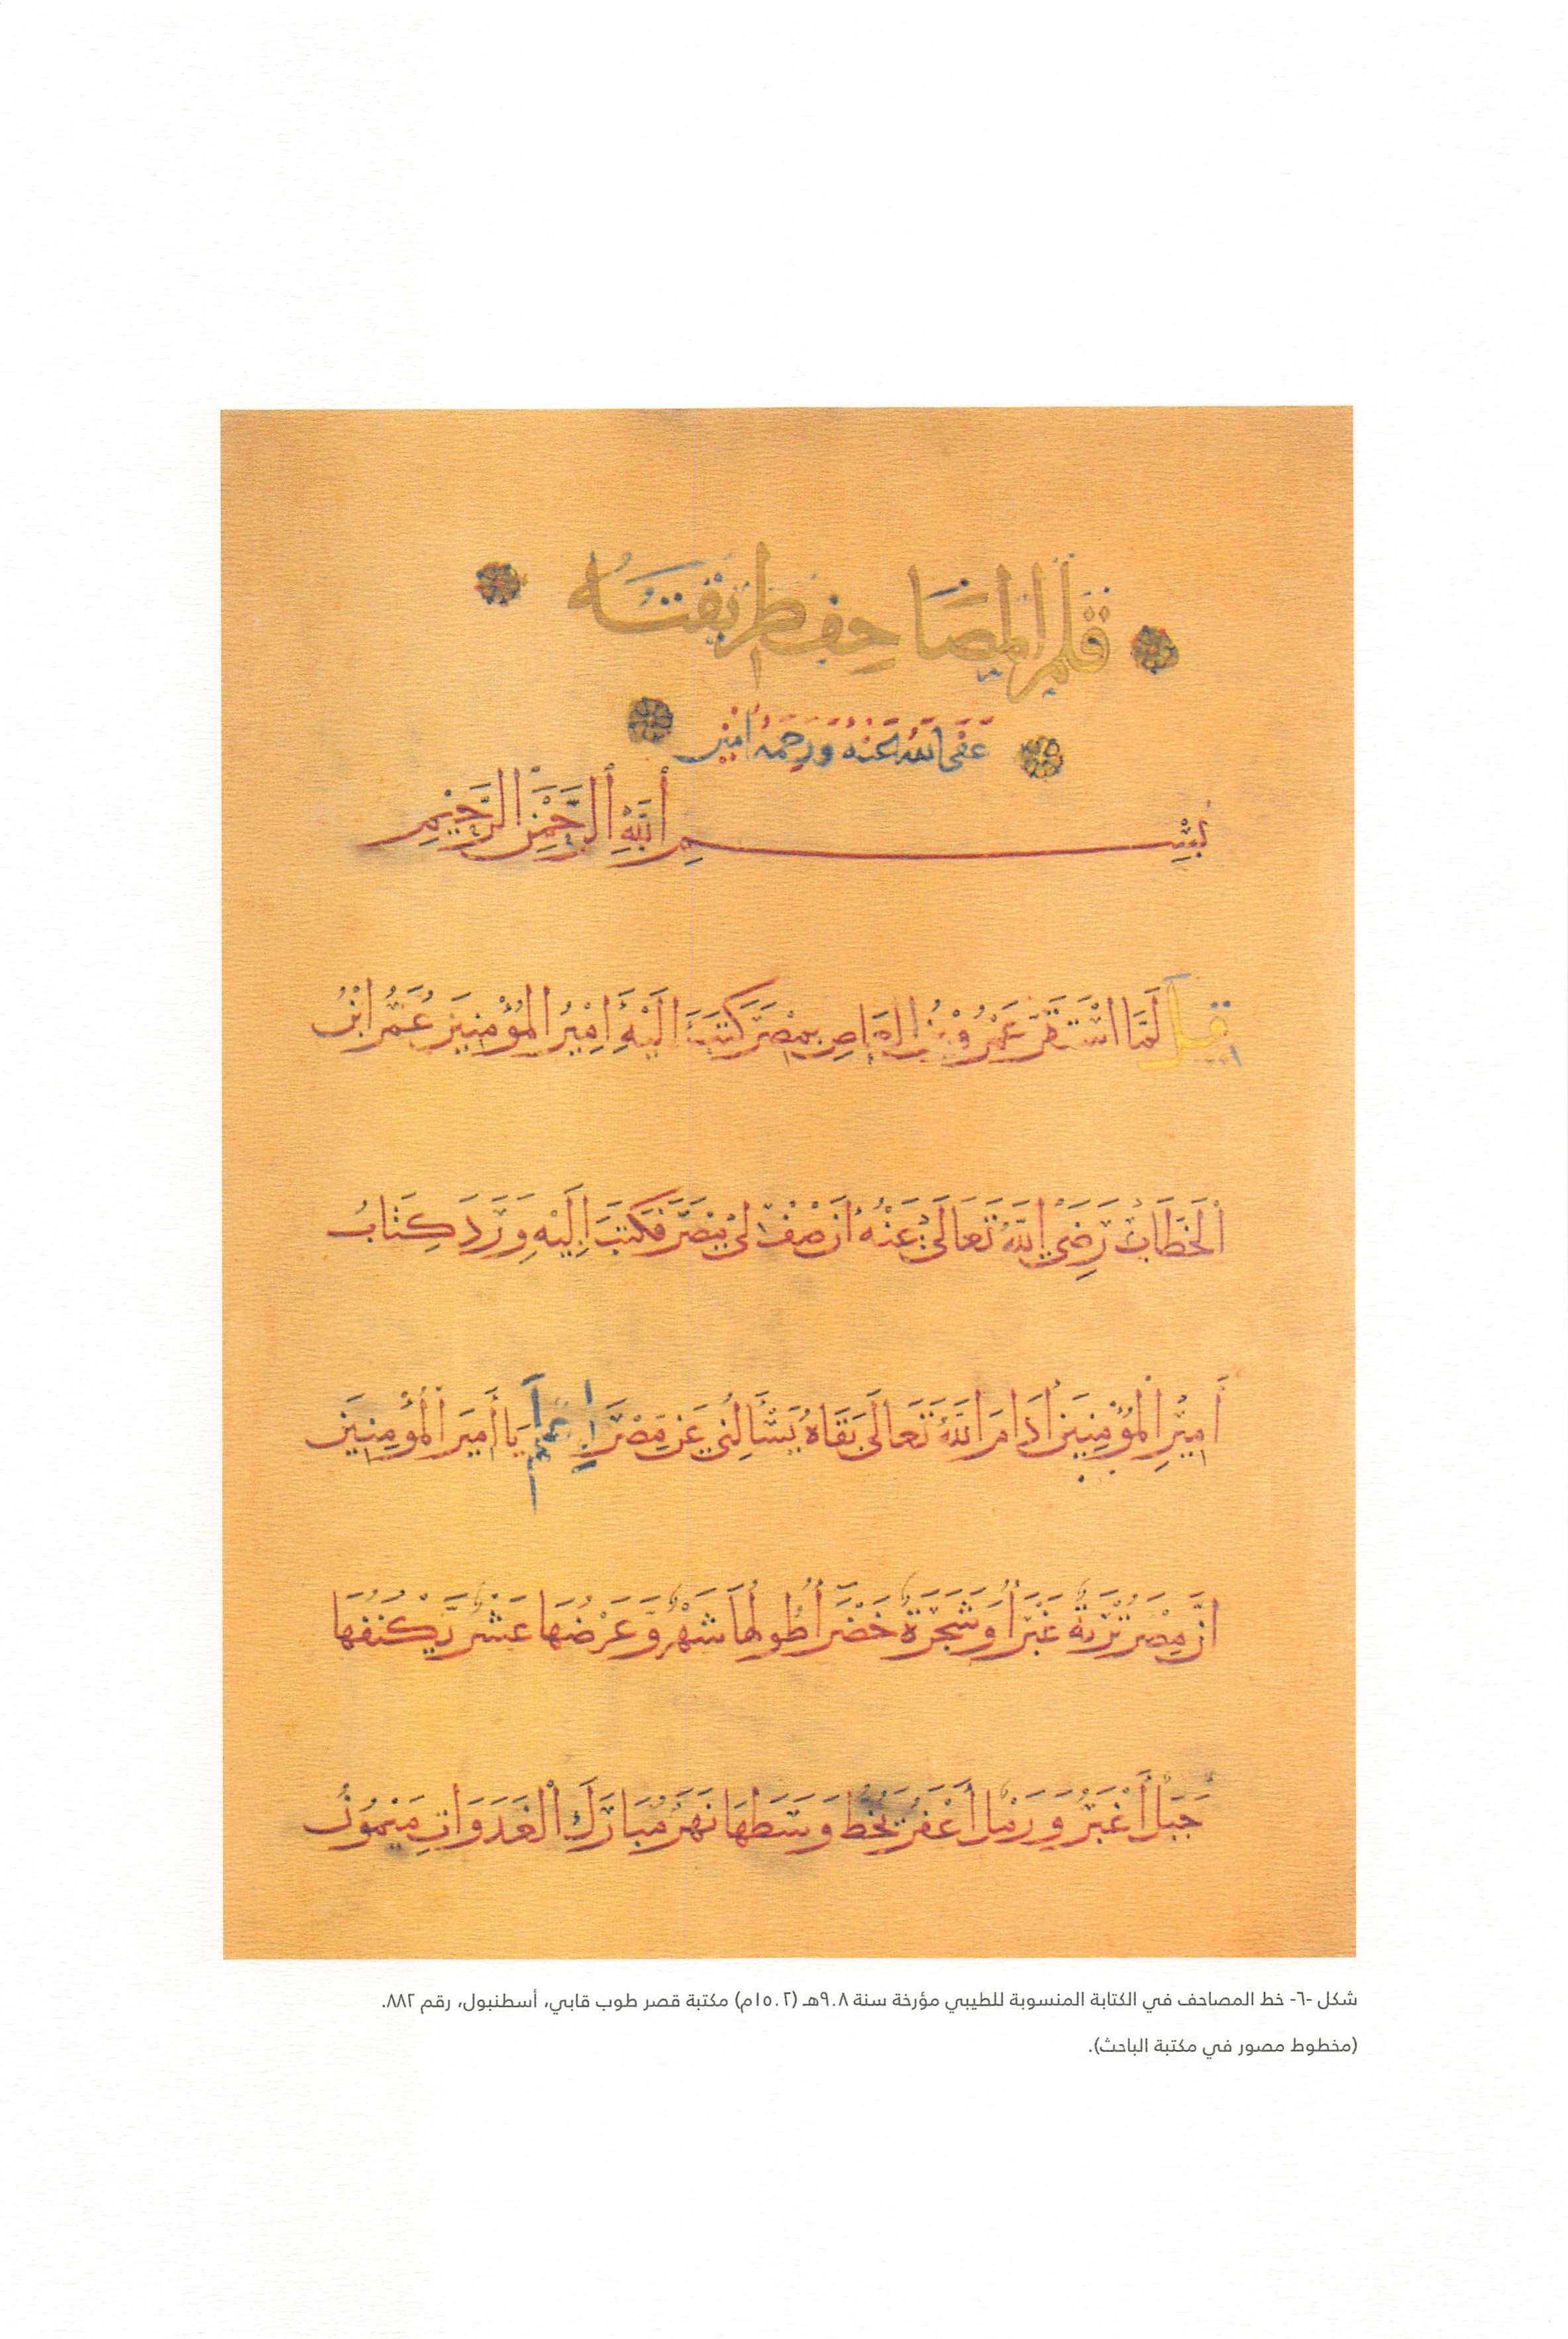 قلم المصاحف طريقته
عفى الله عنه ورحمه امين
بِسْمِ اللَّهِ الرَّحْمَنِ الرَّحِيمِ
قيل لَمَّا اسْتَقَرَّ عَمْرُو بْنُ الْعَاصِ بِمِصْرَ كَتَبَ اِلَيْهِ اَمِيْرُ الْمُؤْمِنِيَن عُمَرُ ابْنُ
اَلْخَطَابْ رَضِيَ اللَّهُ تَعَالَى عَنْهُ اَنْ صِفْ لِيْ مِصْرَ فَكَتَبَ اِلَيْهِ وَرَدَ كِتَابُ
اَمِيْرِ الْمُؤْمِنِيَن اَدَامَ اللَّهُ تَعَالَى بَقَاهُ يَسْأَلُنِي عَنْ مِصْرَ اِعلم يَا أَمِيَر الْمُؤْمِنِيَن
اِنَّ مِصْرَ تُرْبَةٌ غَبْرَأُ وَشَجَرَةٌ خَضْرَأُ طُولُهَا شَهْرٌ وَعَرْضُهَا عَشْرٌ يَكْنُفُهَا
جَبَلٌ أَغْبَرُ وَرَمْلٌ أَعْفَرُ يَخُطُ وَسَطَهَا نَهْرٌ مُبَارَكُ الْغَدَوَاتِ مَيْمُوْنُ
شكل -٦- خط المصاحف في الكتابة المنسوبة للطيبي مؤرخة سنة ٩٠٨هـ (١٥٠٢م) مكتبة قصر طوب قابي، أسطنبول، رقم ٨٨٢.
(مخطوط مصور في مكتبة الباحث).